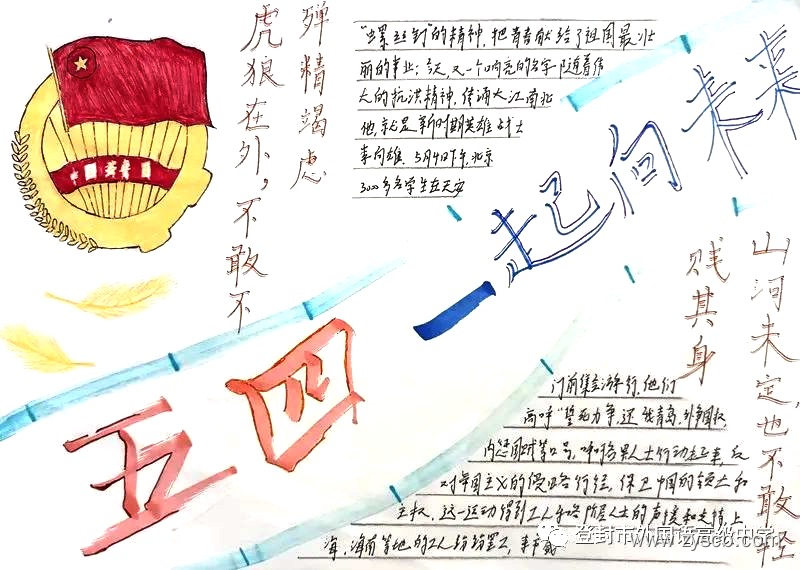 中国共青团
殚精竭虑
虎狼在外，不敢不
"螺丝钉"的精神，把青春献给了祖国最壮
丽的事业；今天，又一个响亮的名字随着伟
大的抗洪精神，传诵大江南北
他就是新时期英雄战士
李向雄，5月4日下午，北京
3000多名学生在天安
一起向未来
五四
山河未定，也不敢轻
贱其身
门前集会游行，他们
高呼"誓死力争，还我青岛，外争国权
内惩国贼等口号，呼吁各界人士行动起来，反
对帝国主义的侵略行径，保卫中国的领土和
主权，这一运动得到工人和各阶层人士的声援和支持，上
海，海南等地的工人纷纷罢工，
登封市外国语高级中学
www.zysco.com